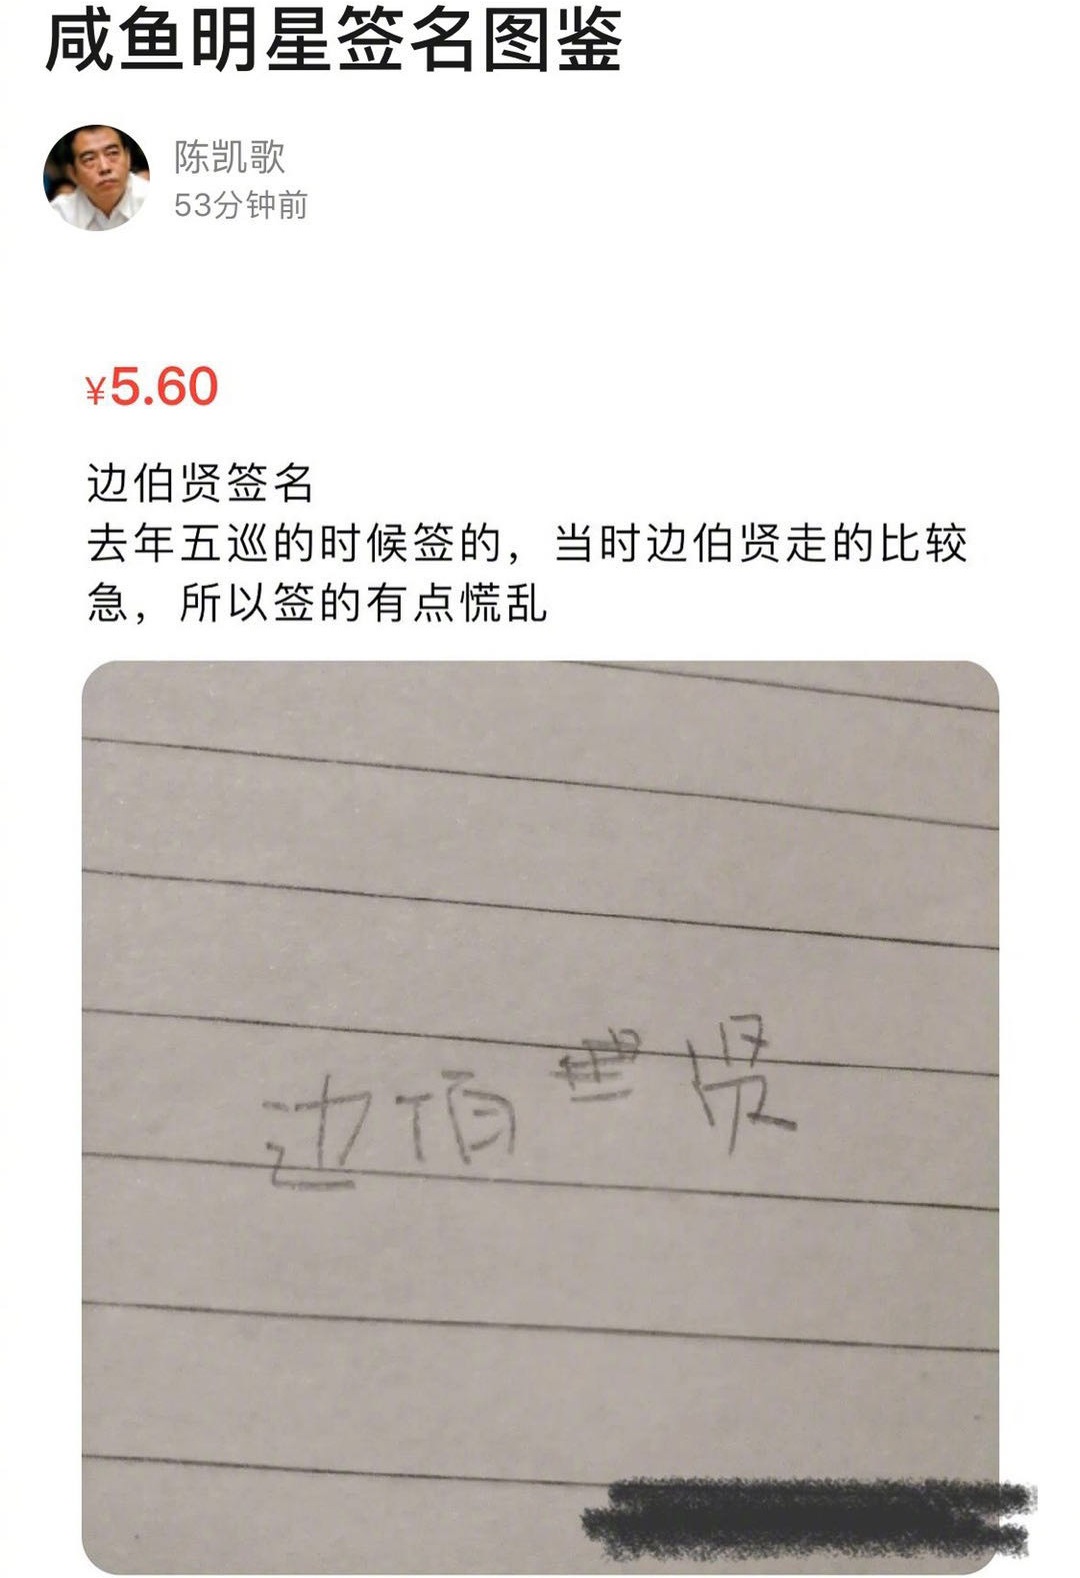 咸鱼明星签名图鉴
陈凯歌
53分钟前
¥5.60
边伯贤签名
去年五巡的时候签的，当时边伯贤走的比较
急，所以签的有点慌乱
边伯贤